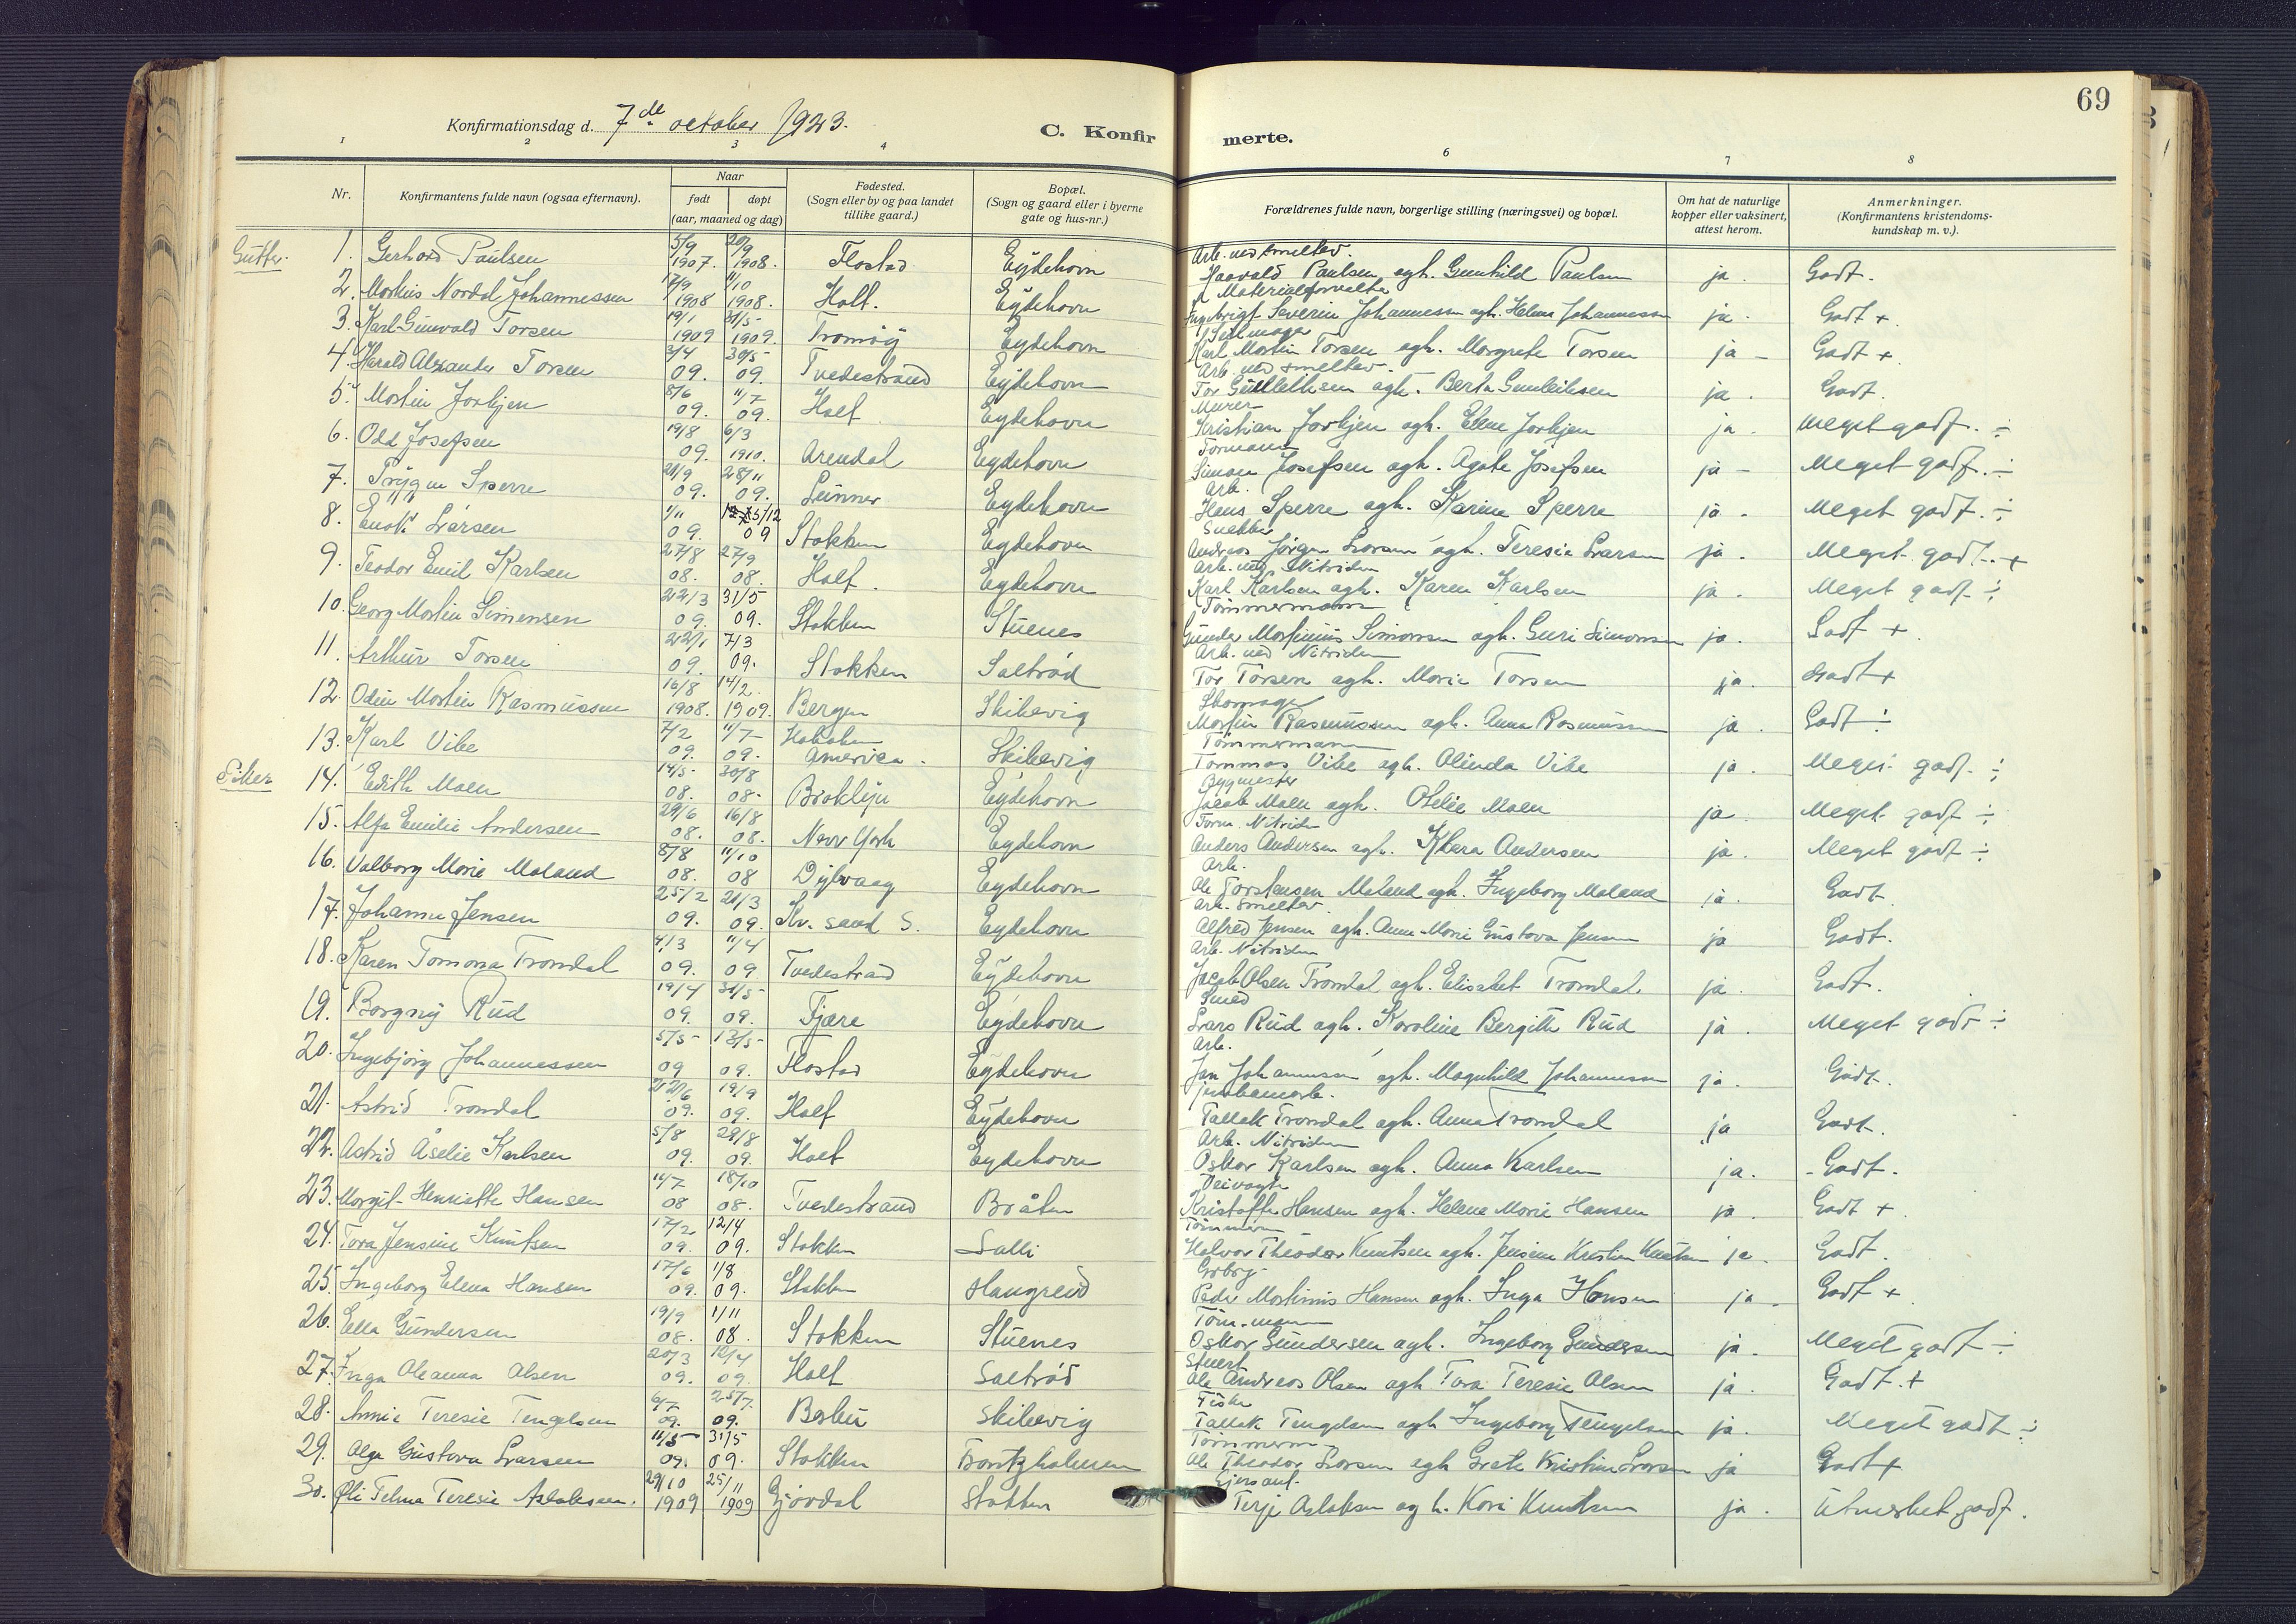 69
Konfirmationsdag d. 7de october 1923.
C. Konfir merte.
1 2 3 4 6 7 8
Nr.
Konfirmantens fulde navn (ogsaa efternavn).
Naar
født døpt
(aar, maaned og dag)
Fødested.
(Sogn eller by og paa landet
tillike gaard.)
Bopæl.
(Sogn og gaard eller i byerne
gate og hus-nr.)
Forældrenes fulde navn, borgerlige stilling (næringsvei) og bopæl.
Om hat de naturlige
kopper eller vaksinert,
attest herom.
Anmerkninger.
(Konfirmantens kristendoms-
kundskap m. v.).
Gutter.
1. Gerhard Paulsen 5/9 1907. 20/9 1908. Flostad Eydehavn Arb. ved smeltev. Haavald Paulsen ogh. Gunhild Paulsen ja. Godt.
2. Nordal Johannessen 17/9 1908 11/10 1908. Holt. Eydehavn Materialforvalter Severin Johannessen ogh. Helene Johannessen ja. Godt +
3. Karl Gunvald Torsen 19/1 1909 31/5 1909. Tromøy Eydehavn Seilmager Karl Martin Torsen ogh. Margrete Torsen ja - Godt +
4. Harald Alexander Torsen 3/4 09. 30/5 09. Tvedestrand Eydehavn Arb. ved smeltev. Tor ogh. Berta ja. Godt.
5. Martin Jorkjen 8/6 09. 11/7 09. Holt Eydehavn Murer Kristian Jorkjen ogh. Elene Jorkjen ja. Meget godt. ÷
6. Odd Josefsen 19/8 09. 6/3 1910. Arendal Eydehavn Formann Simon Josefsen ogh. Agate Josefsen ja - Meget godt. ÷
7. Trygve Sperre 21/9 09. 28/11 09. Lunner Eydehavn Arb. Hans Sperre ogh. Karine Sperre ja. Meget godt. ÷
8. Enok Larsen 1/11 09. 5/12 09 Stokken Eydehavn Snekker Andreas Jørgen Larsen ogh. Teresie Larsen ja. Meget godt. +
9. Teodor Emil Karlsen 27/8 08. 27/9 08. Holt. Eydehavn Arb. ved Nitriden Karl Karlsen ogh. Karen Karlsen ja. Meget godt ÷
10. Georg Martin Simensen 22/3 09. 31/5 09. Stokken Stuenes Tömmermann Gunder Martinius Simonsen ogh. Guri Simonsen ja. Godt +
11. Arthur Torsen 22/1 09. 7/3 09. Stokken Saltrød Arb. ved Nitriden Tor Torsen ogh. Marie Torsen ja. Godt +
12. Odin Martin Rasmussen 16/8 1908. 14/2 1909. Bergen Skibevig Skomager Martin Rasmussen ogh. Anna Rasmussen ja. Godt ÷
13. Karl Vibe 7/2 09. 11/7 09. Hoboken America. Skibevig Tömmermann Tommas Vibe ogh. Olinda Vibe ja. Meget godt. ÷
Piker
14. Edith Moen 14/5 08. 30/8 08. Broklyn Eydehavn Bygmester Jacob Moen ogh. Otelie Moen ja. Meget godt ÷
15. Alfa Emilie Andersen 29/6 08. 16/8 08. New York Eydehavn Form. Nitriden Anders Andersen ogh. Klara Andersen ja. Meget godt ÷
16. Valborg Marie Moland 8/8 08. 11/10 08 Dybvaag Eydehavn Arb. Ole Torstensen Moland ogh. Ingeborg Moland ja. Godt.
17. Johanne Jensen 25/2 09. 21/3 09. Kr. sand S. Eydehavn Arb. smeltev. Alfred Jensen ogh. Anne Marie Gustava Jensen ja Godt.
18. Karen Tomona Tromdal 4/3 09. 11/4 09 Tvedestrand Eydehavn Arb. Nitriden Jacob Olsen Tromdal ogh. Elisabet Tromdal. ja. Godt.
19. Borgny Rud 19/4 09. 31/5 09. Fjære Eydehavn Smed Lars Rud ogh. Karoline Bergitte Rud ja. Meget godt ÷
20. Ingebjörg Johannessen 5/5 09 13/5 09. Flostad Eydehavn Arb. Jon Johannessen ogh. Magnhild Johannessen ja. Godt.
21. Astrid Tromdal 22/6 09. 19/9 09. Holt Eydehavn Tallak Tromdal ogh. Anna Tromdal ja Godt.
22. Astrid Aselie Karlsen 5/8 09. 29/8 09. Holt Eydehavn Arb. Nitriden Oskar Karlsen ogh. Anna Karlsen ja. Godt.
23. Margit Henriette Hansen 14/7 08 18/10 08. Tvedestrand Bråten Veivogter Kristoffer Hansen ogh. Helene Marie Hansen ja. Godt +
24. Tora Jensine Knutsen 17/2 09. 12/4 09. Stokken Salli Tömmerm Halvor Theodor Knutsen ogh. Jensine Kristine Knutsen ja. Godt.
25. Ingeborg Elena Hansen 17/6 09. 1/8 09. Stokken Haugreid Peder Martinius Hansen ogh. Inga Hansen ja. Godt +
26. Ella Gundersen 19/9 08. 1/11 08. Stokken Stuenes Töm.mann Oskar Gundersen ogh. Ingeborg Gundersen ja. Meget godt ÷
27. Inga Oleanna Olsen 20/3 09. 12/4 09. Holt Saltrød Stuert Ole Andreas Olsen ogh Tora Teresie Olsen ja. Godt. +
28. Annie Teresie Tengelsen 6/7 09. 25/7 09. Barbu Skibevig Fisker Tallak Tengelsen ogh Ingeborg Tengelsen ja. Meget godt ÷
29. Olga Gustava Larsen 11/5 09. 31/5 09. Stokken Tömmerm Ole Theodor Larsen ogh Grete Kristine Larsen ja Godt +
30. Teresie Aslaksen. 29/10 1909 25/11 1909 Gjövdal Stokken Terje Aslaksen og h. Kari Knutsen ja. Utmerket godt.